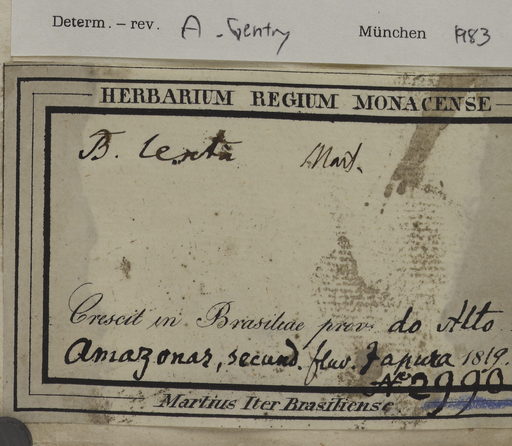 Determ. – rev. A. Gentry München 1983
HERBARIUM REGIUM MONACENSE
B. Mart.
Crescit in Brasiliae prov. do Alto
Amazonas, secund. fluv. Japura 1819.
No 2990
Martius Iter Brasiliense